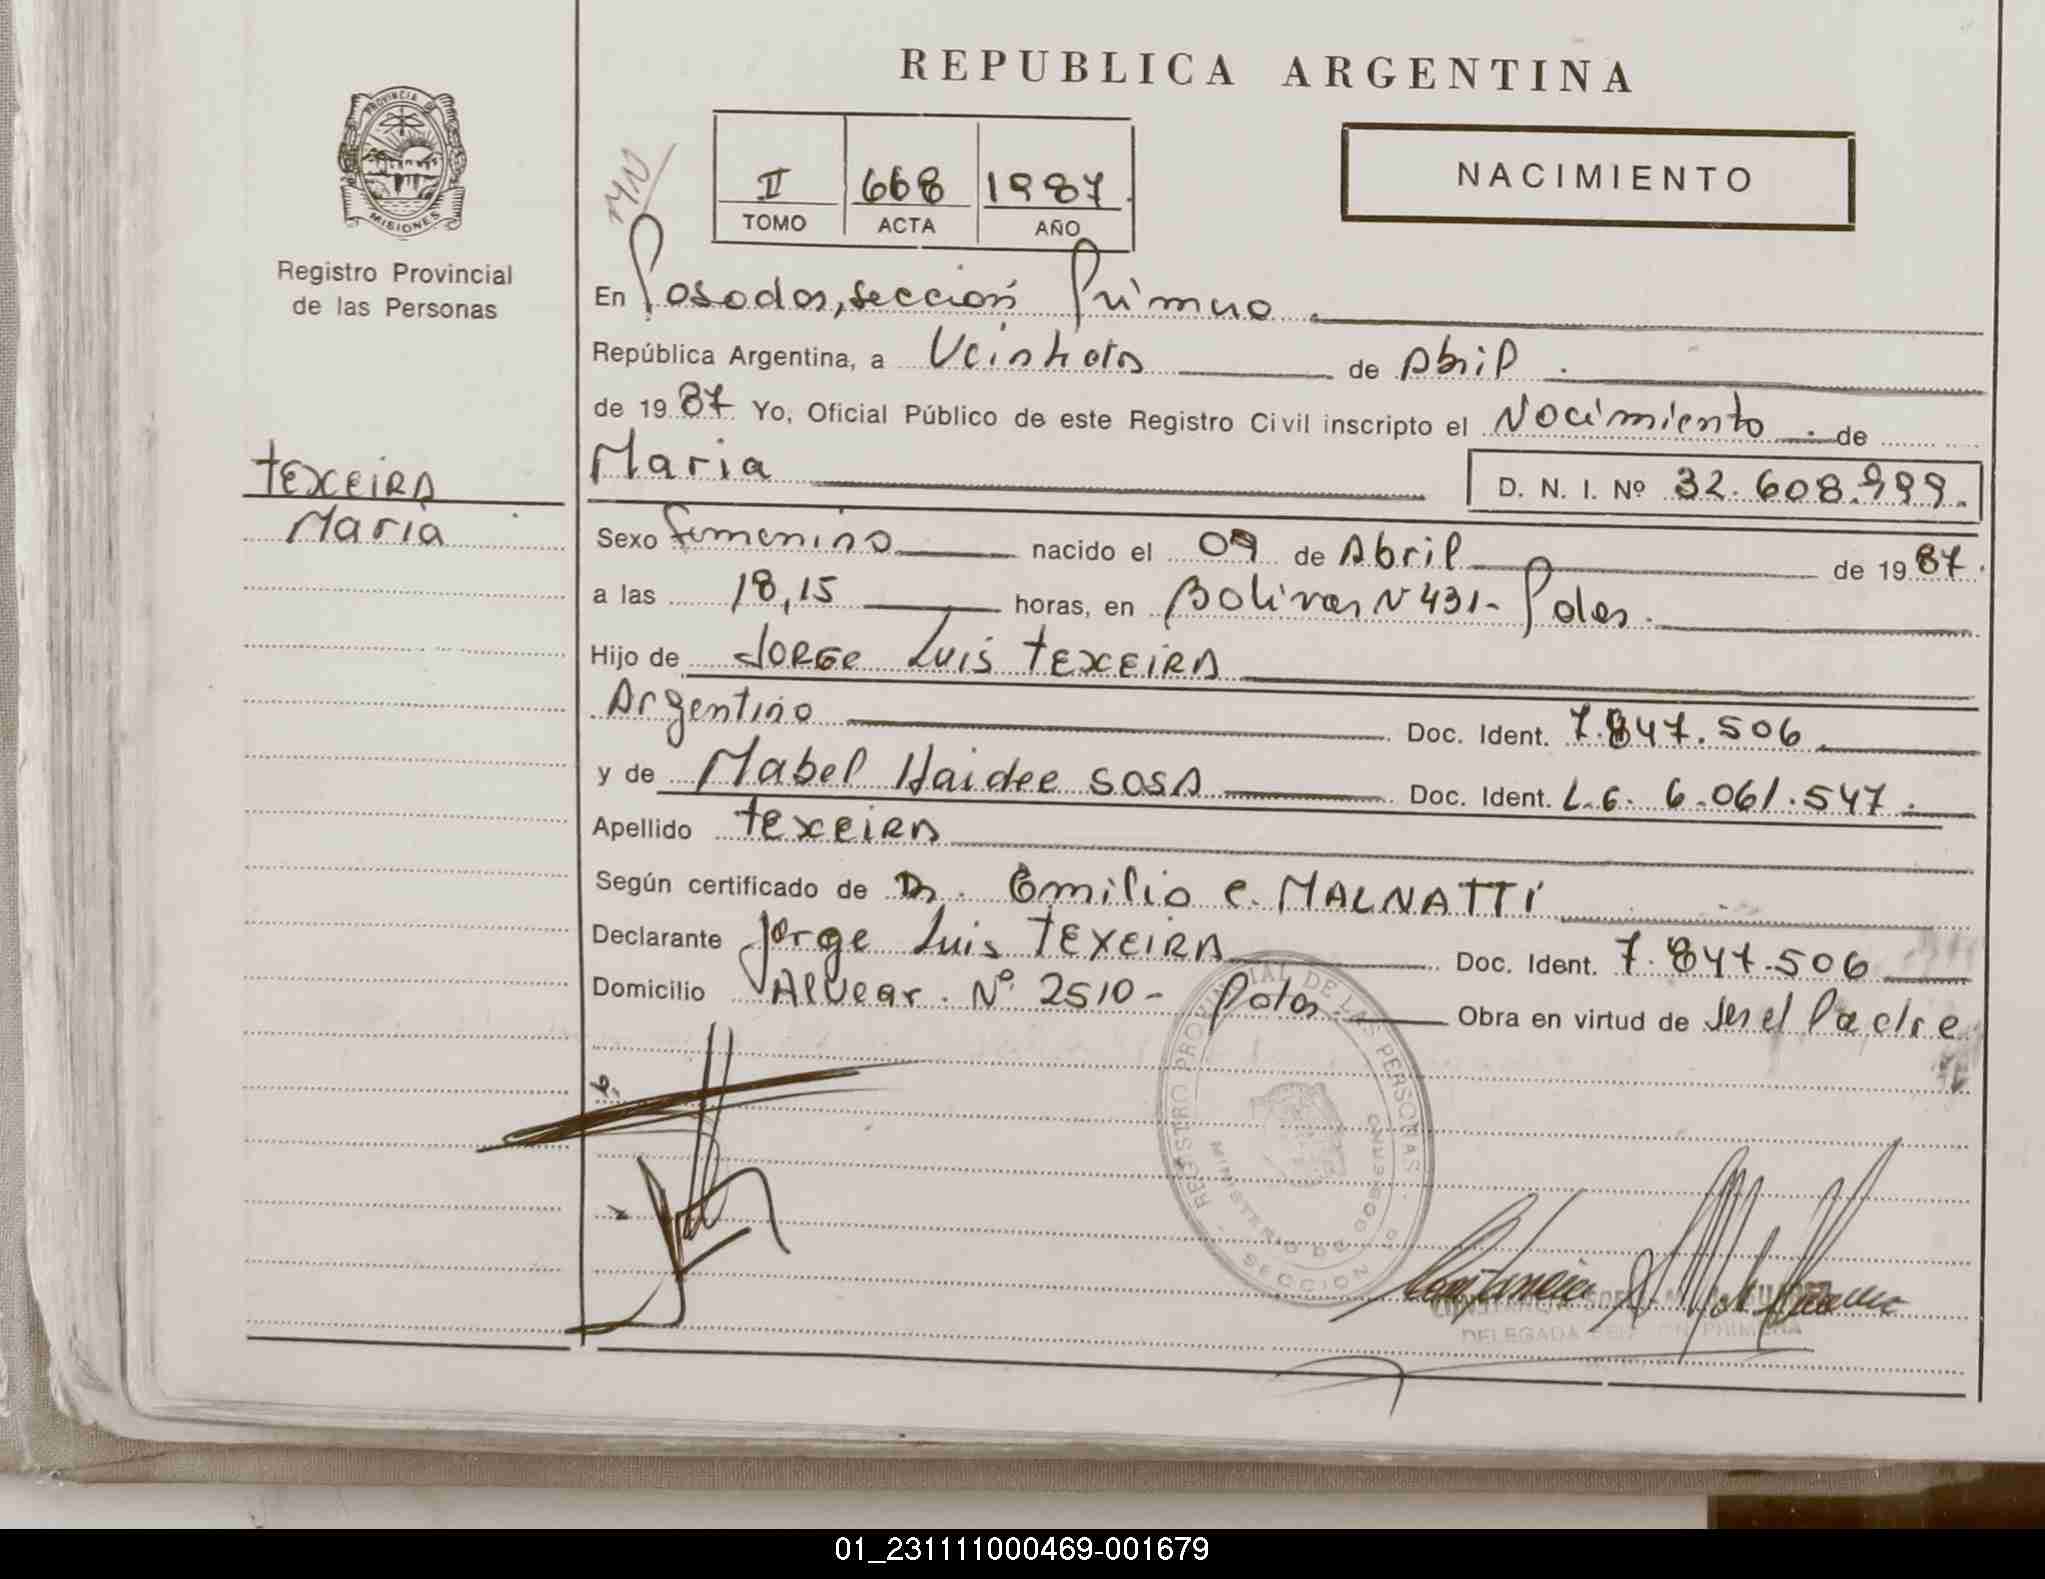 REPUBLICA ARGENTINA
PROVINCIA DE
MISIONES
Registro Provincial
de las Personas
II 668 1987.
TOMO ACTA AÑO
NACIMIENTO
En Posadas, sección Primera.
República Argentina, a de Abril.
de 1987. Yo, Oficial Público de este Registro Civil inscripto el Nacimiento de
TEXEIRA
Maria
Maria D. N. I. Nº 32.608.999.
Sexo femenino nacido el 09 de Abril de 1987.
a las 18,15 horas, en Bolivar Nº 431- Pdas.
Hijo de JORGE Luis TEXEIRA
Argentino Doc. Ident. 7.847.506
y de Mabel Haidee SOSA Doc. Ident. L.C. 6.061.547.
Apellido TEXEIRA
Según certificado de Dr. Emilio C. MALNATTI
Declarante Jorge Luis TEXEIRA Doc. Ident. 7.847.506
Domicilio Alvear. Nº 2510- Pdas. Obra en virtud de ser el Padre
REGISTRO PROVINCIAL DE LAS PERSONAS
MINISTERIO DE GOBIERNO
SECCION
DELEGADA SECCION PRIMERA
01_231111000469-001679